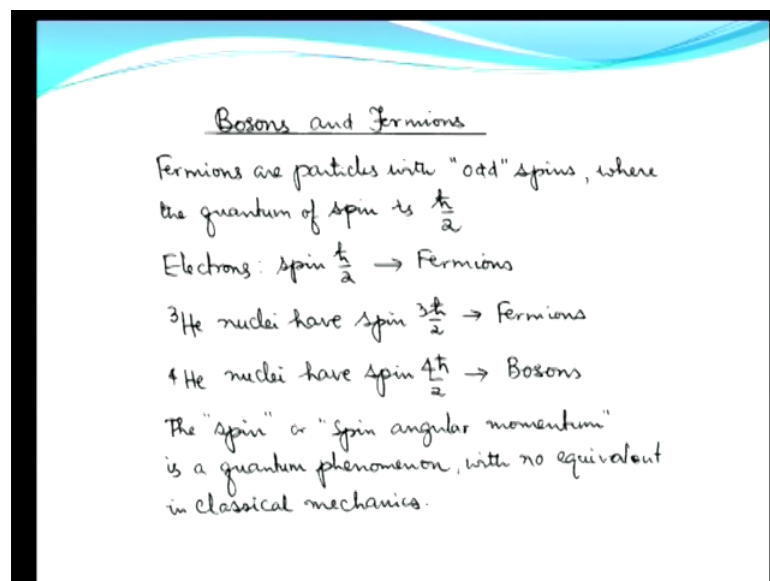 Bosons and Fermions
Fermions are particles with "odd" spins, where
the quantum of spin is ℏ/2
Electrons: spin ℏ/2 → Fermions
³He nuclei have spin 3ℏ/2 → Fermions
⁴He nuclei have spin 4ℏ/2 → Bosons
The "spin" or "spin angular momentum"
is a quantum phenomenon, with no equivalent
in classical mechanics.